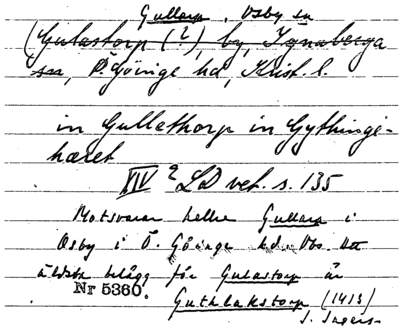 Gullarp, Osby sn
(Gulastorp (?) by, Ignaberga
sn, Ö. Göinge hd, Krist. l.
in Gullethorp in Gythinge-
hæret
XIV 2 LD vet. s. 135
Motsvarar heller Gullarp i
Osby i Ö. Göinge hd. Obs. att
äldsta belägg för Gulastorp är
Nr 5360.
Guthlakstorp (1413)